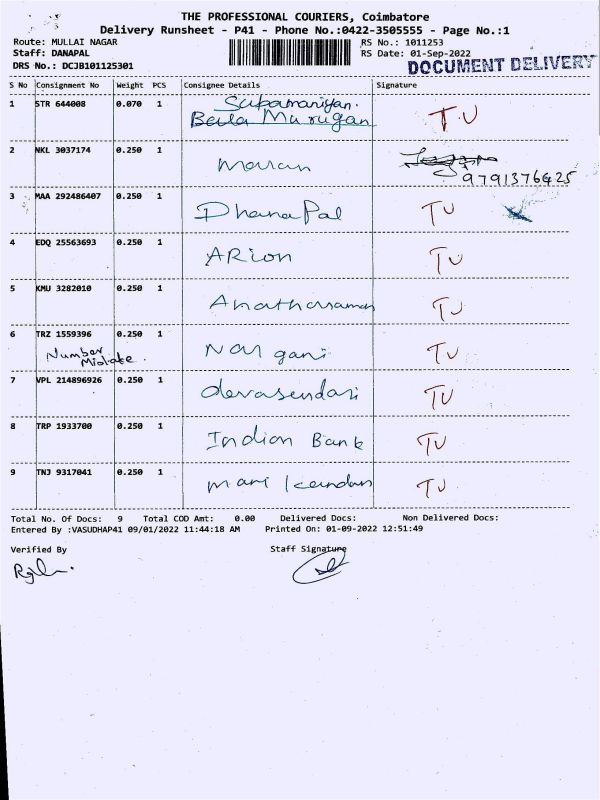 THE PROFESSIONAL COURIERS, Coimbatore
Delivery Runsheet - P41 - Phone No.:0422-3505555 - Page No.:1
Route: MULLAI NAGAR RS No.: 1011253
Staff: DANAPAL RS Date: 01-Sep-2022
DRS No.: DCJB101125301 DOCUMENT DELIVERY
S No Consignment No Weight PCS Consignee Details Signature
1 STR 644008 0.070 1 Subamaniyan. TU
Baula Murugan
2 NKL 3037174 0.250 1 Maran
9791376425
3 MAA 292486407 0.250 1 DhanaPal TU
4 EDQ 25563693 0.250 1 ARion TU
5 KMU 3282010 0.250 1 Anatharaman TU
6 TRZ 1559396 0.250 1 Nar gani TU
Number
7 VPL 214896926 0.250 1 devasendari TU
8 TRP 1933700 0.250 1 Indian Bank TU
9 TNJ 9317041 0.250 1 Mani kandan TU
Total No. Of Docs: 9 Total COD Amt: 0.00 Delivered Docs: Non Delivered Docs:
Entered By :VASUDHAP41 09/01/2022 11:44:18 AM Printed On: 01-09-2022 12:51:49
Verified By Staff Signature